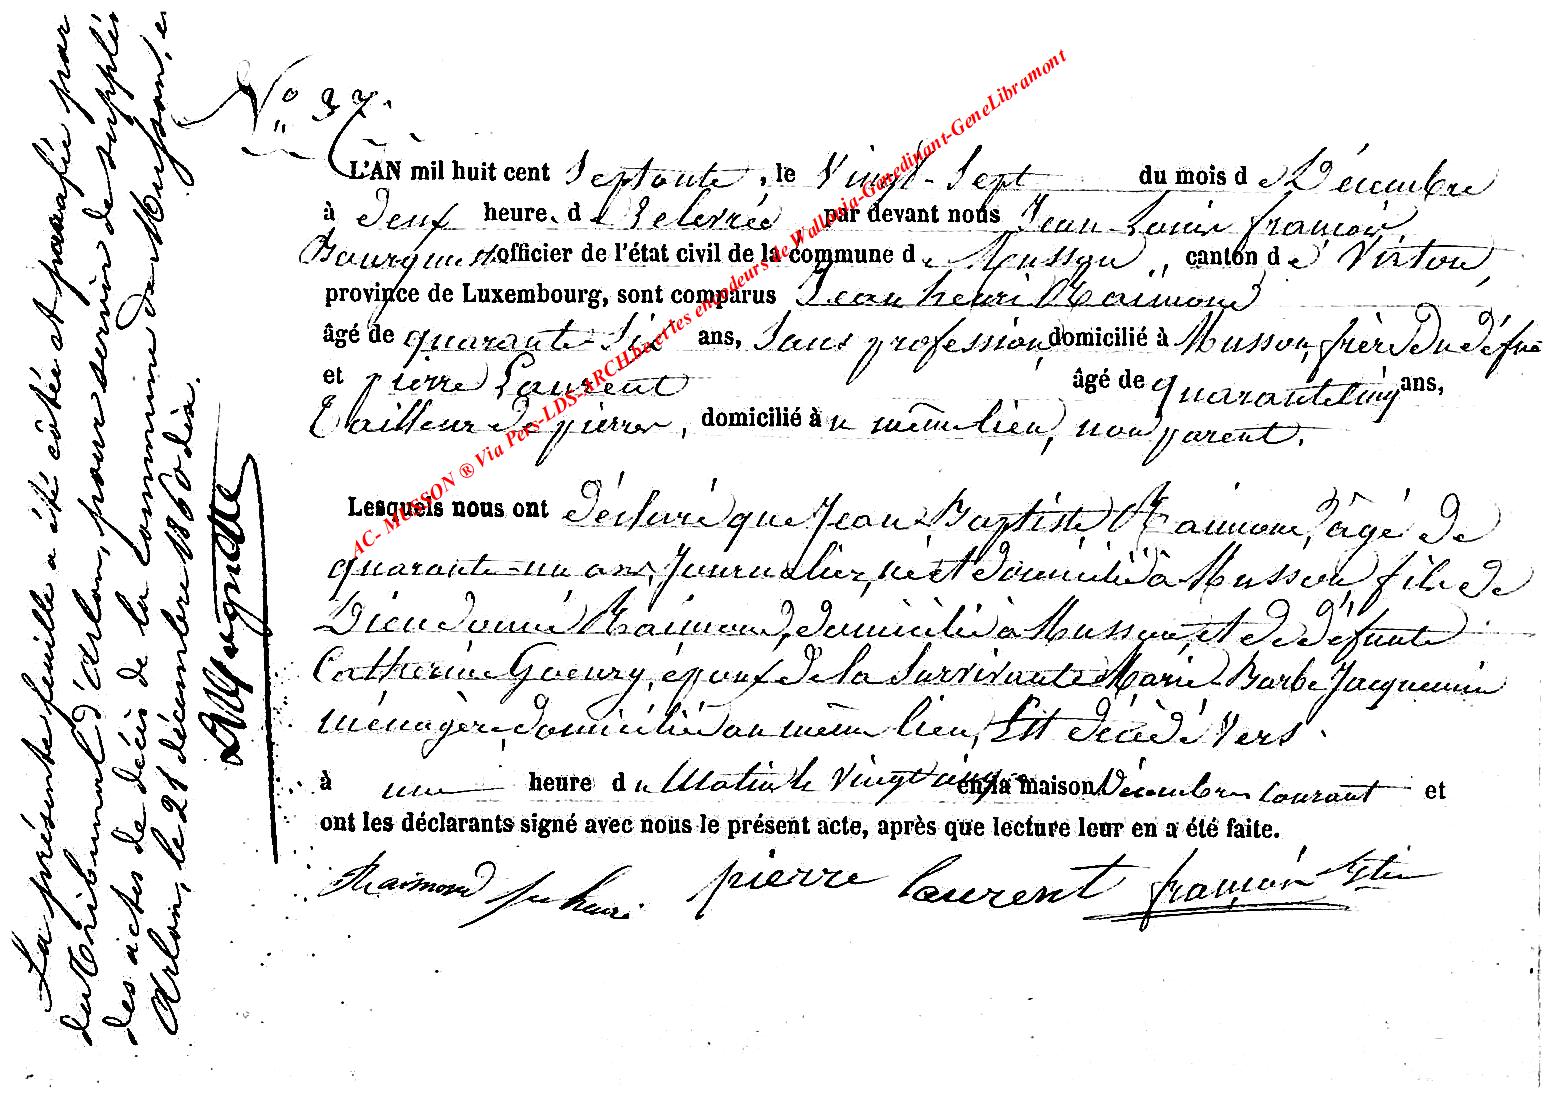 La présente feuille a été côtée et paraphée par
du Tribunal d'Arlon, pour servir de supplé
des actes de décès de la commune de Musson, 
Arlon, le 21 décembre 1860 dix.
N° 37.
L'AN mil huit cent Septante, le Vingt-Sept du mois de Décembre
à deux heure. de relevée par devant nous Jean Louis françois,
Bourgmestre officier de l'état civil de la commune de Musson, canton de Virton,
province de Luxembourg, sont comparus Jean henri Raimond
âgé de quarante-six ans, Sans profession, domicilié à Musson, frère du défunt
et pierre Laurent âgé de quarante cinq ans,
Tailleur de pierres, domicilié au même lieu, non parent.
Lesquels nous ont déclaré que Jean Baptiste Raimond, âgé de
quarante-un ans, Journalier, né et domicilié à Musson, fils de
Dieudonné Raimond, domicilié à Musson, et de défunte
Catherine Goeury, époux de la Survivante Marie Barbe Jacquemin
ménagère, domiciliée au même lieu, Est décédé Vers
à une heure du Matin le Vingt cinq en la maison Décembre courant et
ont les déclarants signé avec nous le présent acte, après que lecture leur en a été faite.
Raimond Jen henri pierre laurent françois
AC- MUSSON ® Via Pers-LDS-ARCH.be et les encodeurs de Wallonia-Genedinant-GeneLibramont